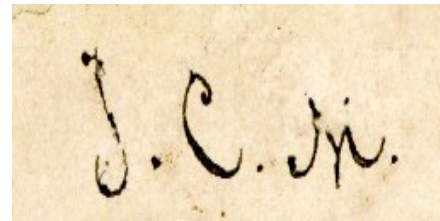 J. C. M.